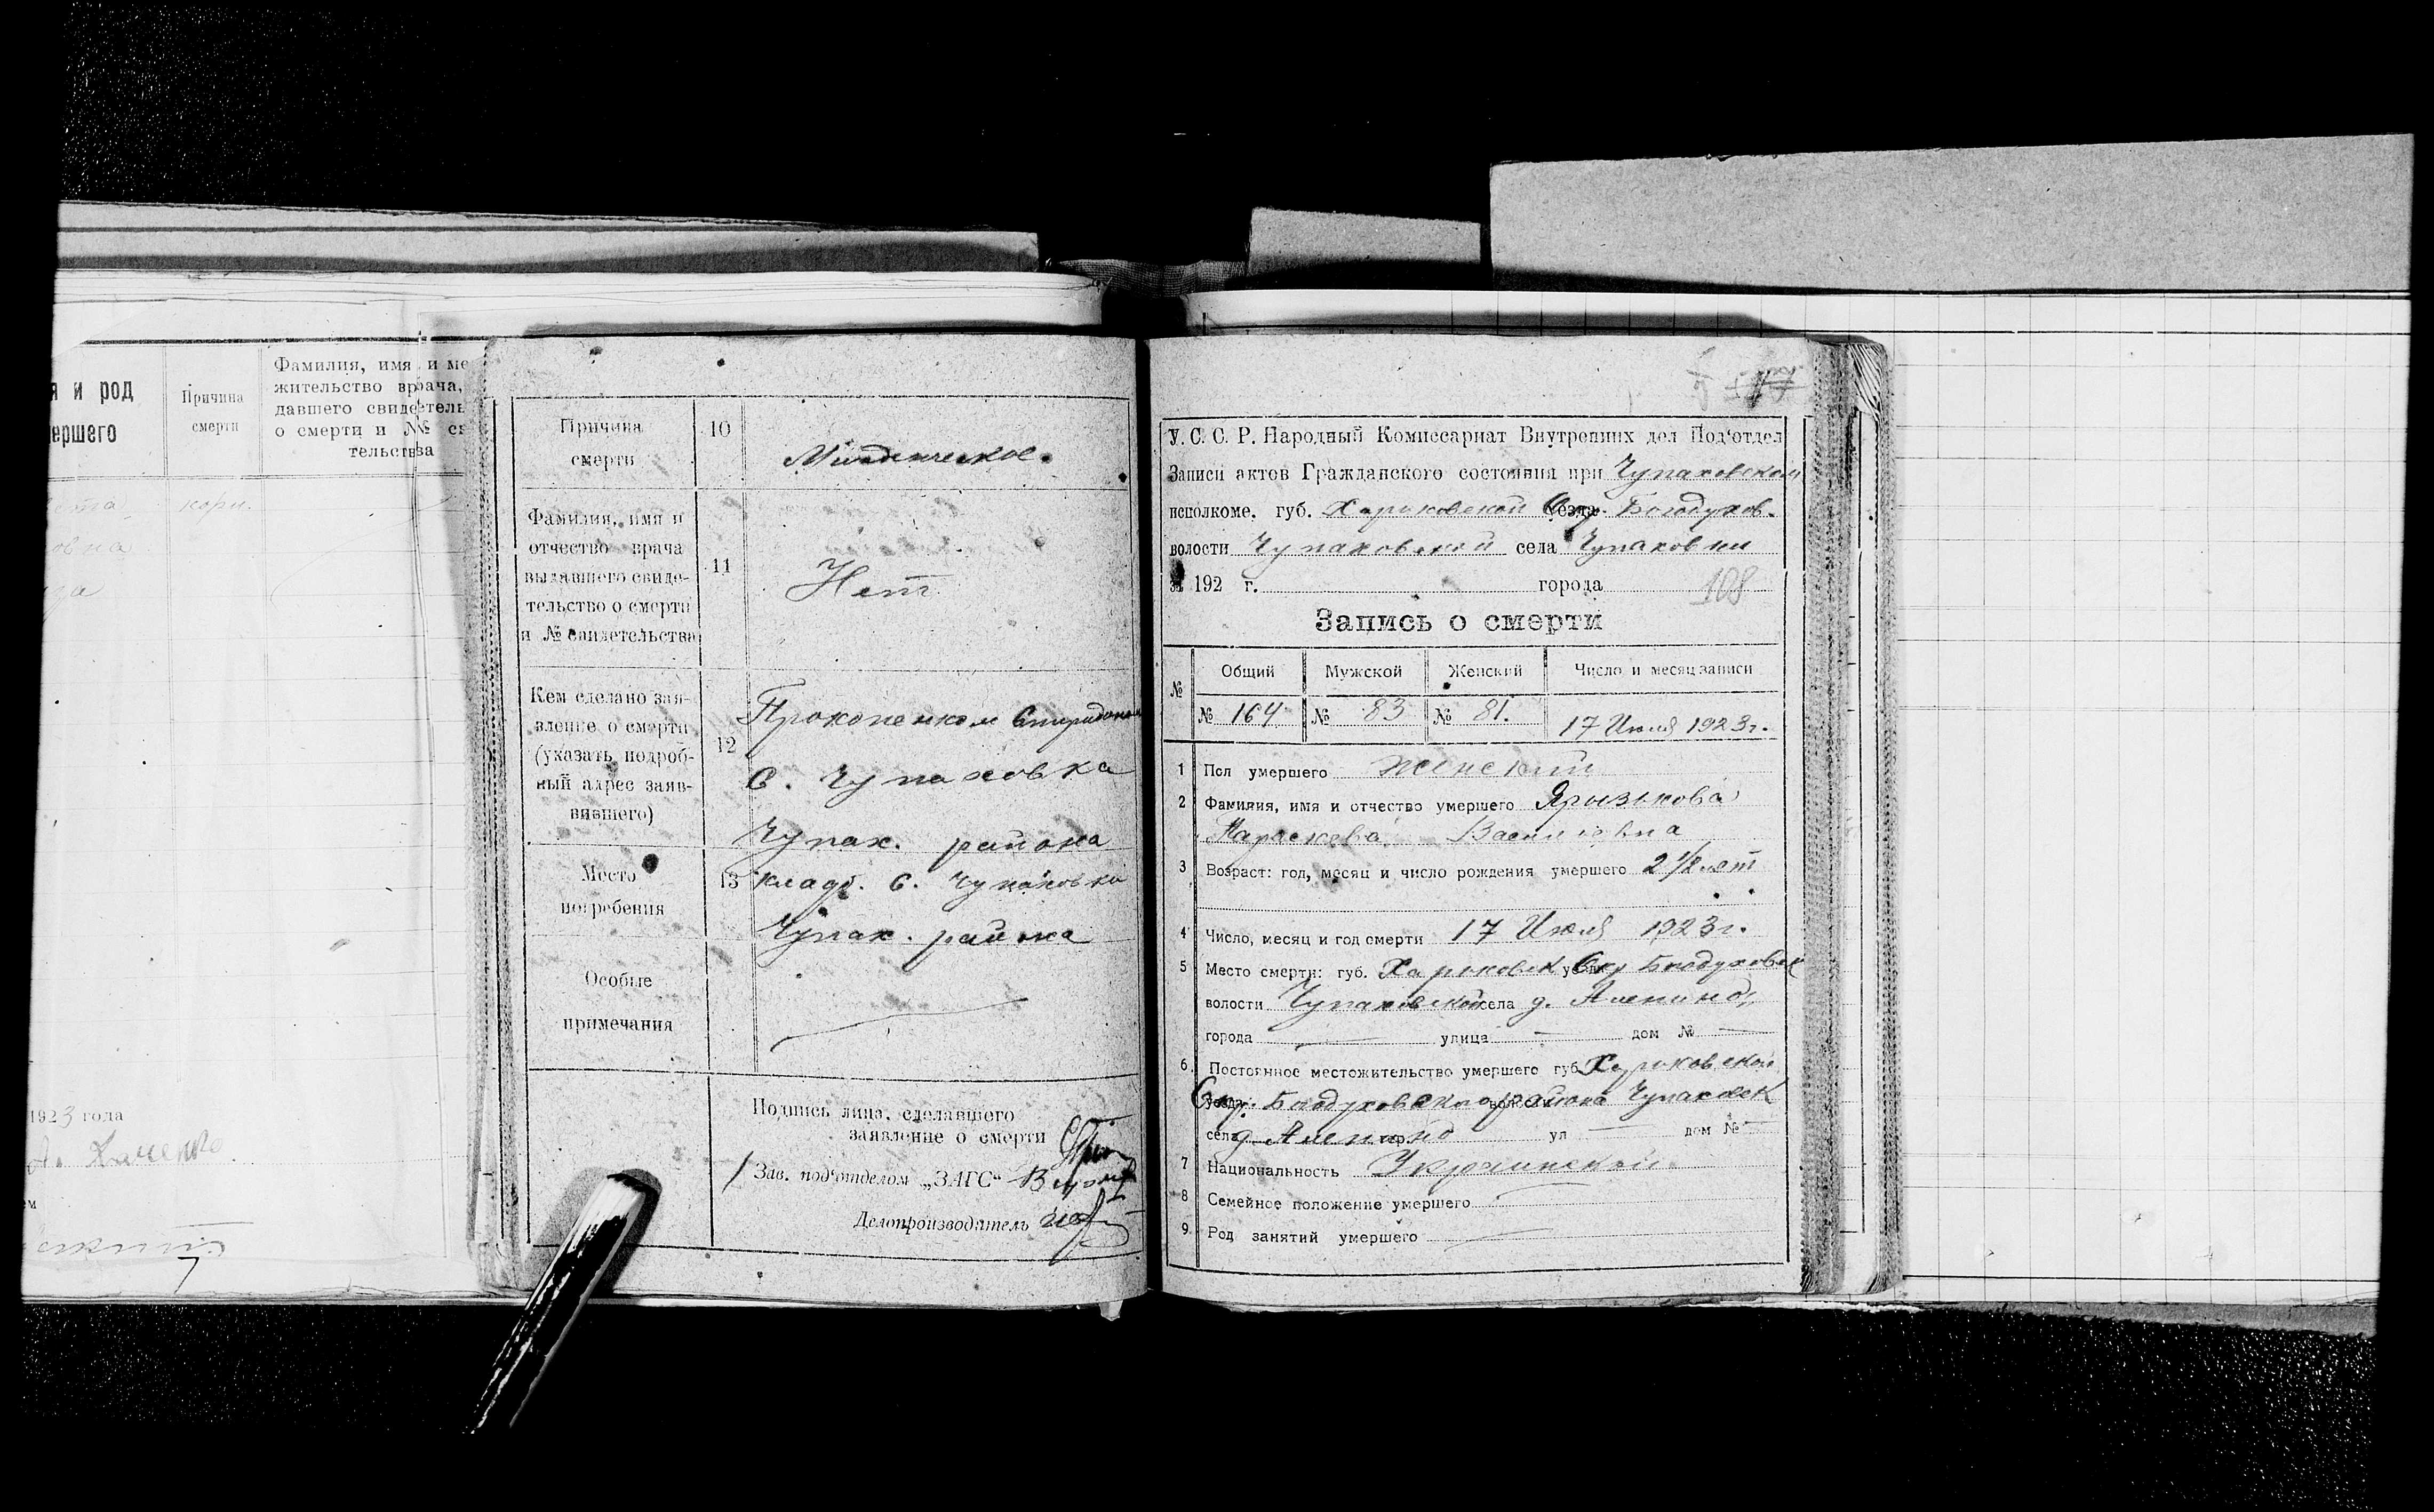 я и род
ершего
Причина
смерти
Фамилия, имя и ме
жительство врача,
давшего свидетель
о смерти и №№ св
тельства
кори.
овна
1923 года
Причина
смерти
10
Младенческое.
Фамилия, имя и
отчество врача
выдавшего свиде-
тельство о смерти
и № свидетельства
11
Нет
Кем сделано зая-
вление о смерти
(указать подроб-
ный адрес заяв-
вившего)
12
Прокопенком Спиридоном
С. Чупаховка
Чупах. района
Место
погребения
13
кладб. С. Чупаховка
Чупах. района
Особые
примечания
Подпись лица, сделавшего
заявление о смерти
Зав. под'отделом „ЗАГС"
Делопроизводитель
У. С. С. Р. Народный Комиссариат Внутренних дел Под'отдел
Записи актов Гражданского состояния при Чупаховском
исполкоме, губ. Харьковской уезда Окр. Богодухов.
волости Чупаховской села Чупаховки
192 г. города 108
Запись о смерти
№ Общий Мужской Женский Число и месяц записи
№ 164 № 83 № 81. 17 Июля 1923 г.
1 Пол умершего женский
2 Фамилия, имя и отчество умершего Ярызькова
Параскева Васильевна
3 Возраст: год, месяц и число рождения умершего 2 1/2 лет
4 Число, месяц и год смерти 17 Июля 1923 г.
5 Место смерти: губ. Харьковск уезда Окр Богодуховск
волости Чупаховской села д.
города — улица — дом № —
6 Постоянное местожительство умершего губ. Харьковской
уезда Окр. Богодуховского волости района Чупаховск
села д. гор. ул — дом № —
7 Национальность Украинской
8 Семейное положение умершего —
9 Род занятий умершего —